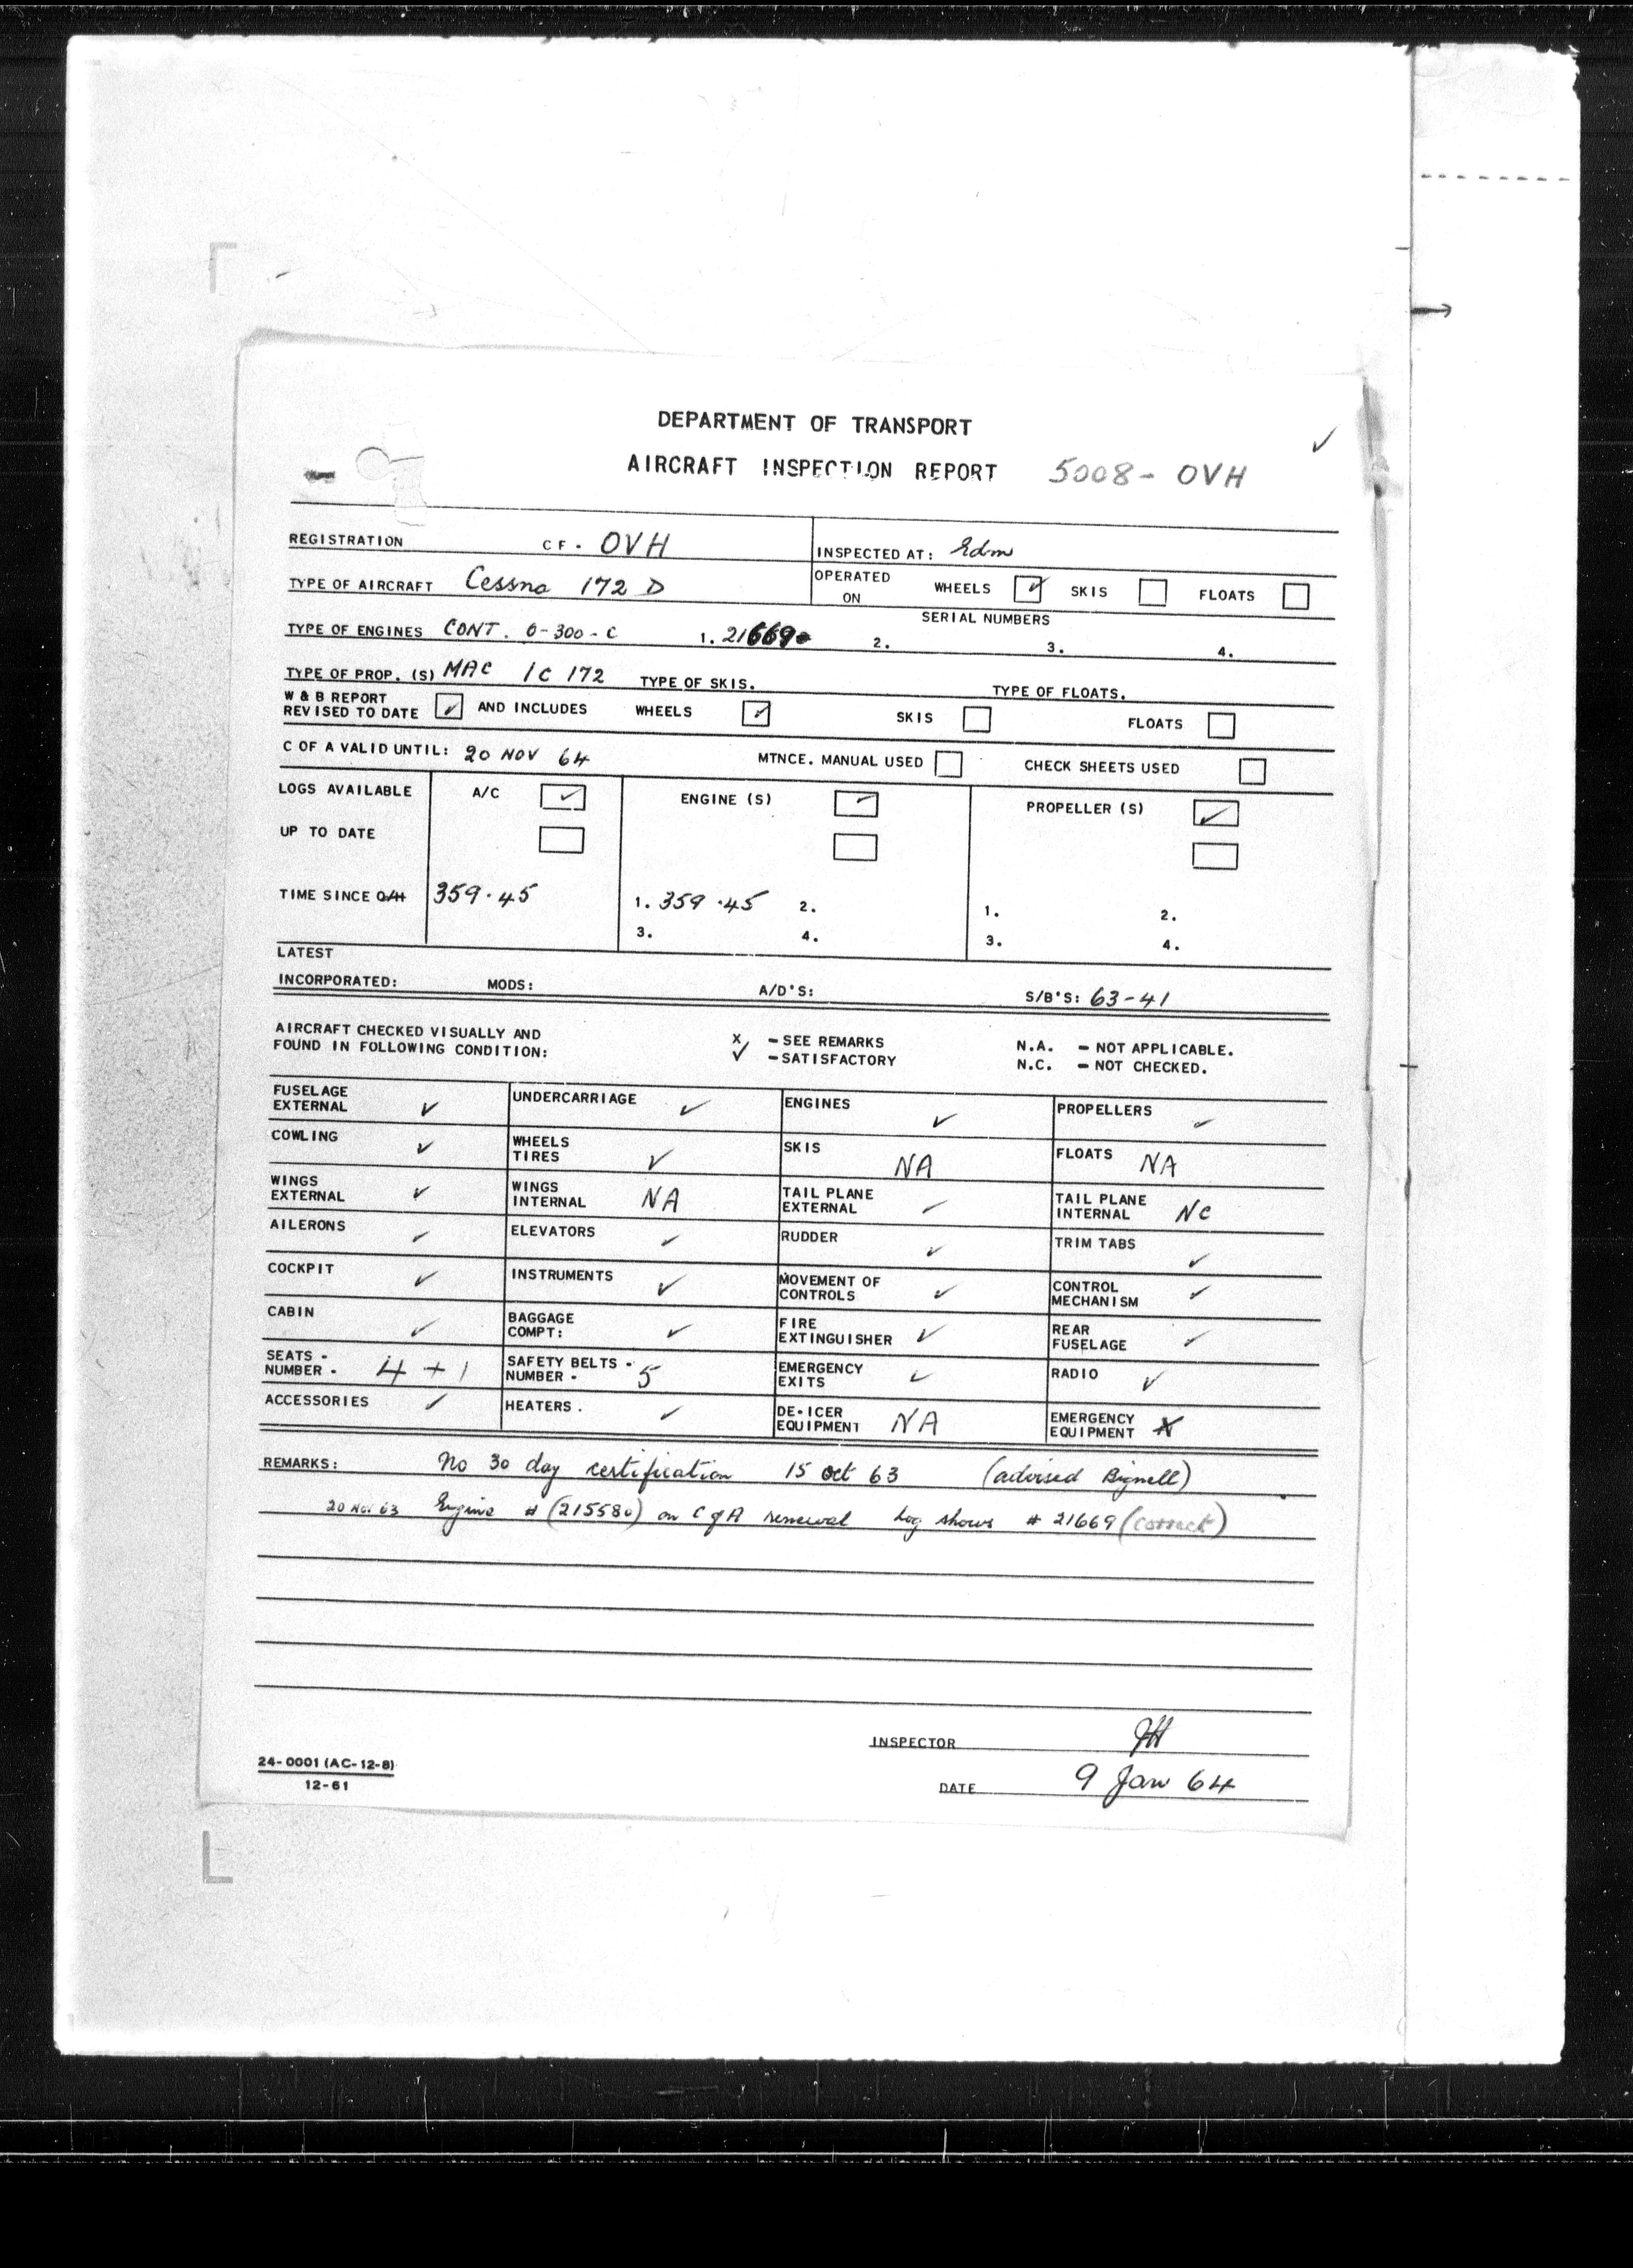 DEPARTMENT OF TRANSPORT
✓
AIRCRAFT INSPECTION REPORT 5008 - OVH
REGISTRATION CF - OVH INSPECTED AT: Edm
TYPE OF AIRCRAFT Cessna 172 D OPERATED ON WHEELS ✓ SKIS FLOATS
SERIAL NUMBERS
TYPE OF ENGINES CONT. O-300-C 1. 21669 2. 3. 4.
TYPE OF PROP. (S) MAC 1C 172 TYPE OF SKIS. TYPE OF FLOATS.
W & B REPORT
REVISED TO DATE ✓ AND INCLUDES WHEELS ✓ SKIS FLOATS
C OF A VALID UNTIL: 20 NOV 64 MTNCE. MANUAL USED CHECK SHEETS USED
LOGS AVAILABLE A/C ✓ ENGINE (S) ✓ PROPELLER (S) ✓
UP TO DATE
TIME SINCE O/H 359·45 1. 359·45 2. 1. 2.
3. 4. 3. 4.
LATEST
INCORPORATED: MODS: A/D'S: S/B'S: 63-41
AIRCRAFT CHECKED VISUALLY AND X - SEE REMARKS N.A. - NOT APPLICABLE.
FOUND IN FOLLOWING CONDITION: ✓ - SATISFACTORY N.C. - NOT CHECKED.
FUSELAGE EXTERNAL ✓ UNDERCARRIAGE ✓ ENGINES ✓ PROPELLERS ✓
COWLING ✓ WHEELS TIRES ✓ SKIS NA FLOATS NA
WINGS EXTERNAL ✓ WINGS INTERNAL NA TAIL PLANE EXTERNAL ✓ TAIL PLANE INTERNAL NC
AILERONS ✓ ELEVATORS ✓ RUDDER ✓ TRIM TABS ✓
COCKPIT ✓ INSTRUMENTS ✓ MOVEMENT OF CONTROLS ✓ CONTROL MECHANISM ✓
CABIN ✓ BAGGAGE COMPT: ✓ FIRE EXTINGUISHER ✓ REAR FUSELAGE ✓
SEATS - NUMBER - 4 + 1 SAFETY BELTS - NUMBER - 5 EMERGENCY EXITS ✓ RADIO ✓
ACCESSORIES ✓ HEATERS. ✓ DE-ICER EQUIPMENT NA EMERGENCY EQUIPMENT X
REMARKS: No 30 day certification 15 Oct 63 (advised Bignell)
20 Nov 63 Engine # (215580) on C of A renewal Log shows # 21669 (correct)
INSPECTOR
24-0001 (AC-12-8)
12-61
DATE 9 Jan 64